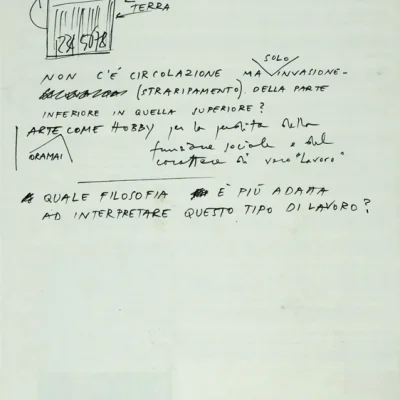 TERRA
1234 5078
NON C'È CIRCOLAZIONE MA SOLO INVASIONE-
(STRARIPAMENTO) DELLA PARTE
INFERIORE IN QUELLA SUPERIORE?
ARTE ORAMAI COME HOBBY per la perdita della
funzione sociale e del
carattere di vero "Lavoro"
QUALE FILOSOFIA È PIÙ ADATTA
AD INTERPRETARE QUESTO TIPO DI LAVORO?